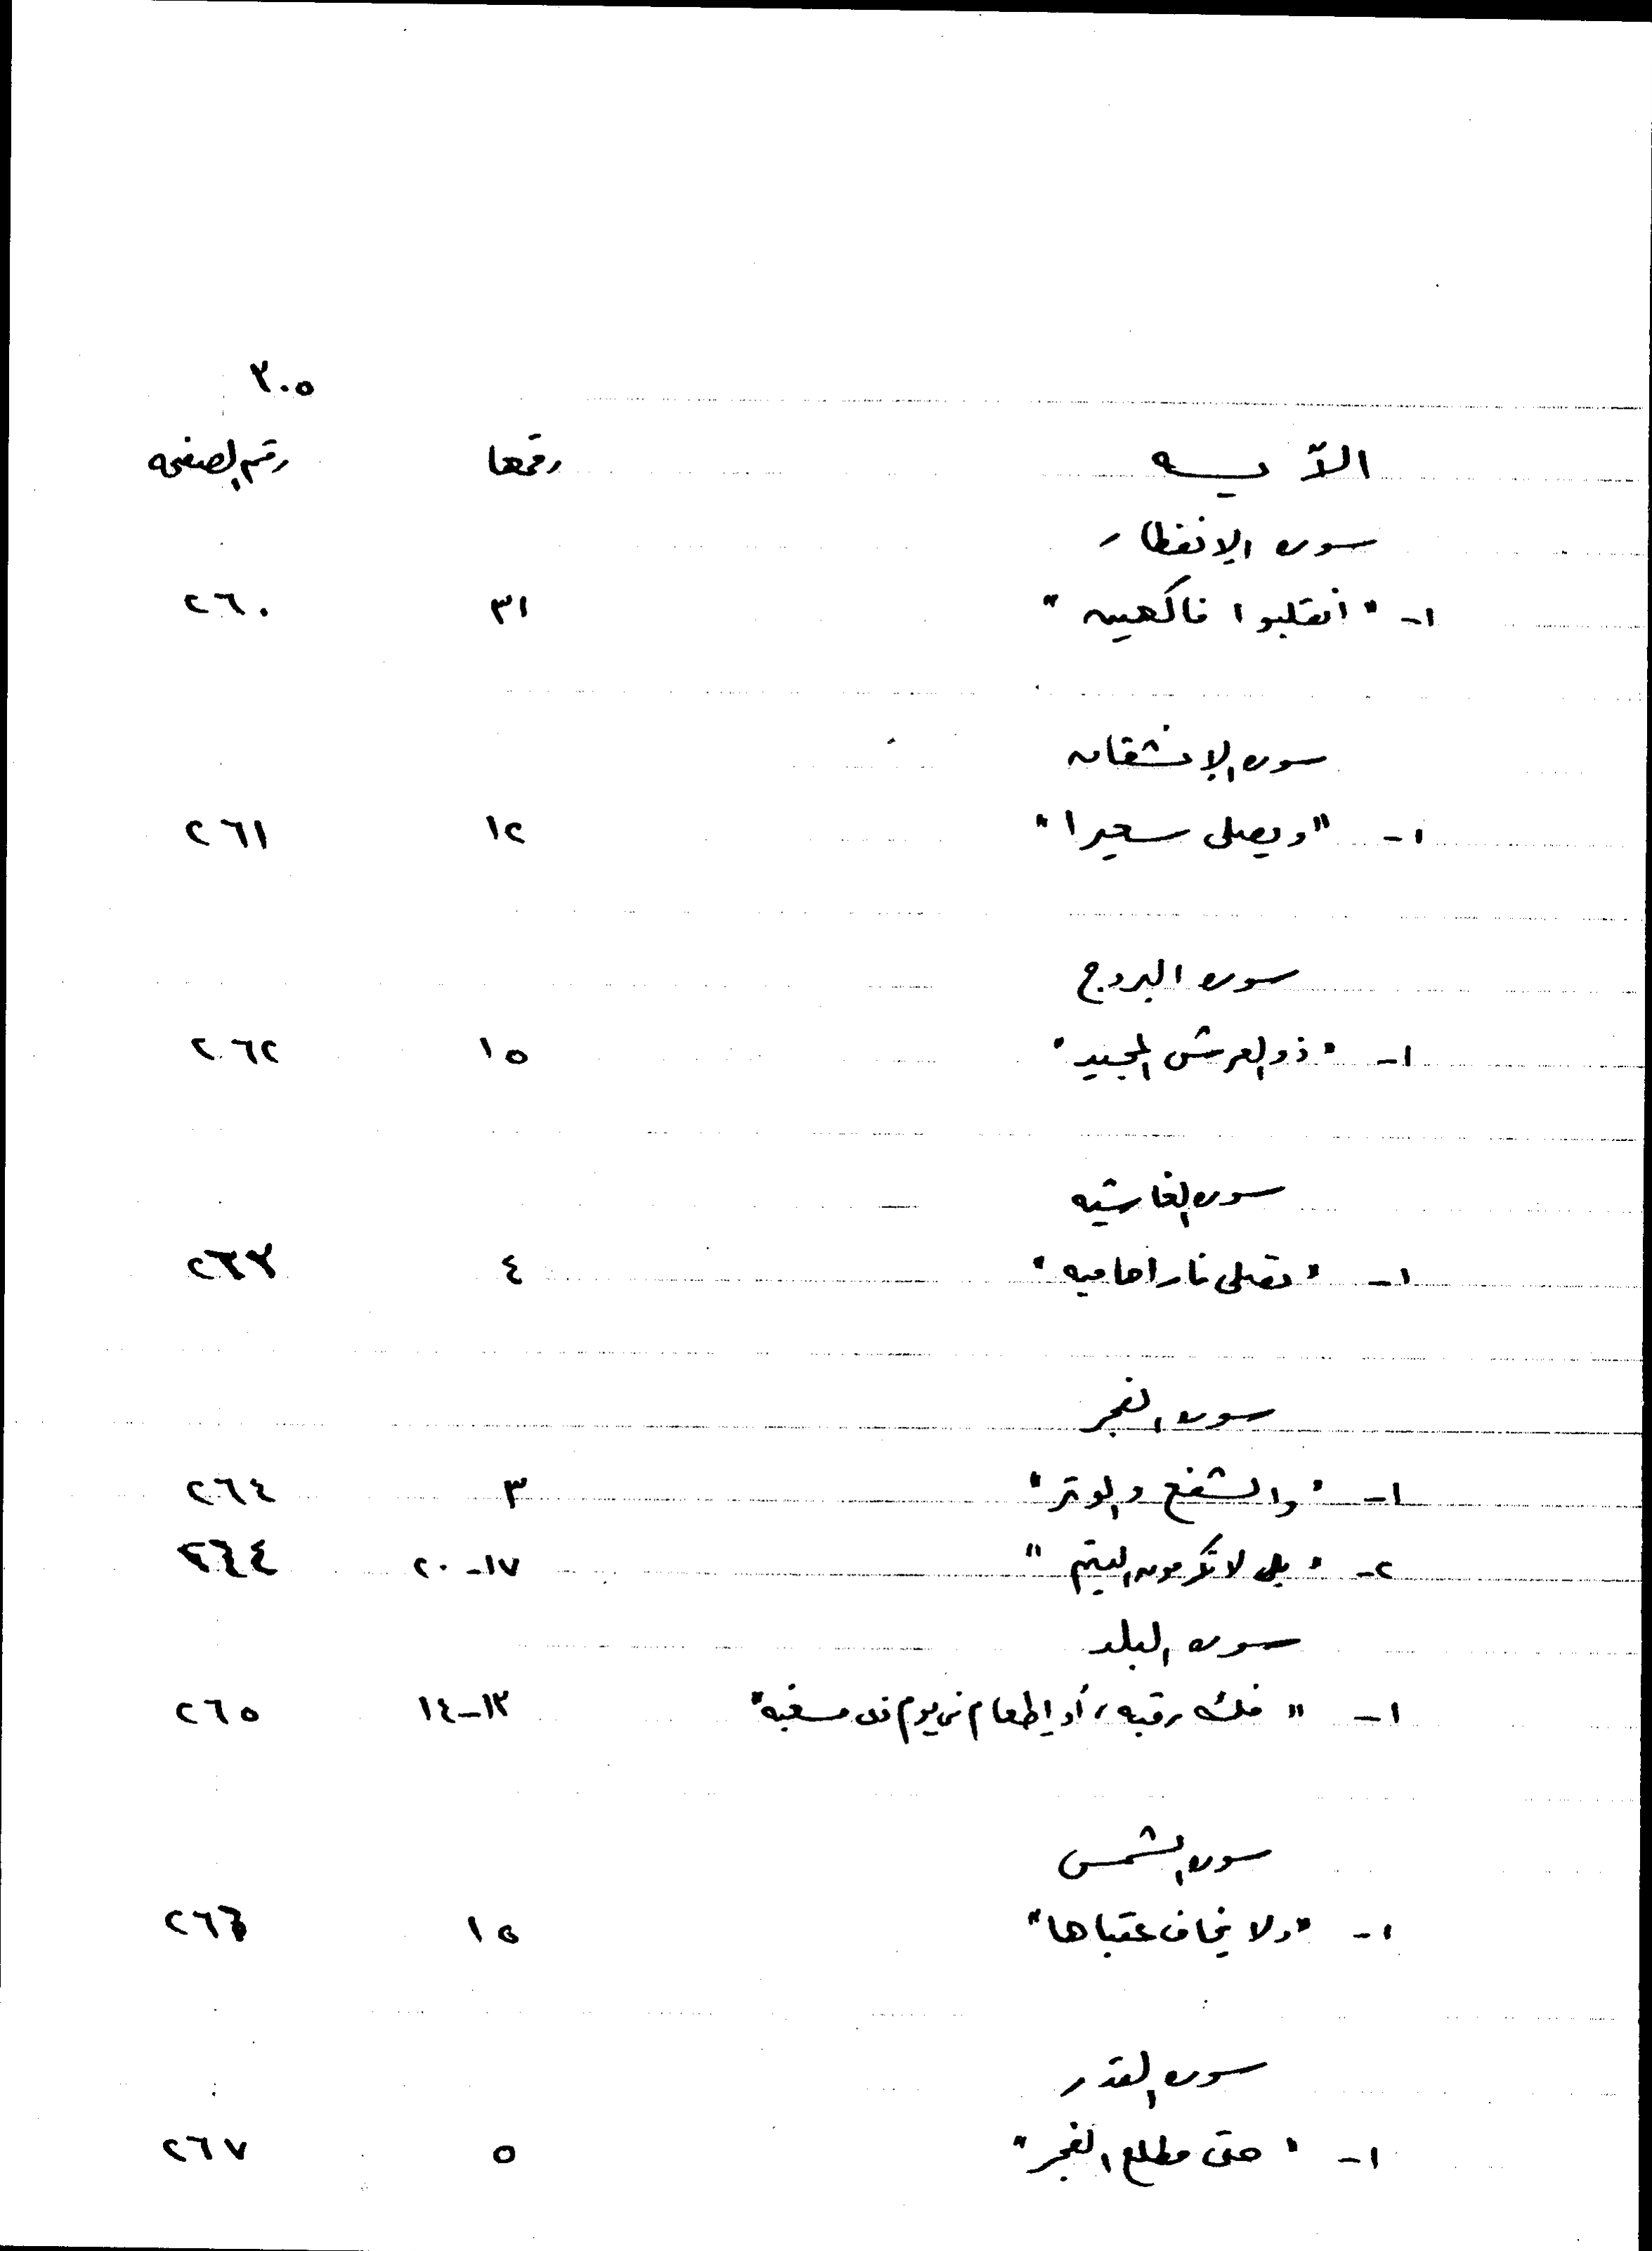 ٣٠٥
الآيــه رقمها رقم الصفحه
سوره الإنفطار
١- "انقلبوا فاكهين" ٣١ ٢٦٠
سوره الإنشقاق
١- "ويصلى سعيرا" ١٢ ٢٦١
سوره البروج
١- "ذو العرش المجيد" ١٥ ٢٦٢
سوره الغاشيه
١- "تصلى نارا حاميه" ٤ ٢٦٣
سوره الفجر
١- "والشفع والوتر" ٣ ٢٦٤
٢- "بل لا تكرمون اليتيم" ١٧-٢٠ ٢٦٤
سوره البلد
١- "فك رقبه، أو إطعام في يوم ذى مسغبه" ١٣-١٤ ٢٦٥
سوره الشمس
١- "ولا يخاف عقباها" ١٥ ٢٦٦
سوره القدر
١- "حتى مطلع الفجر" ٥ ٢٦٧